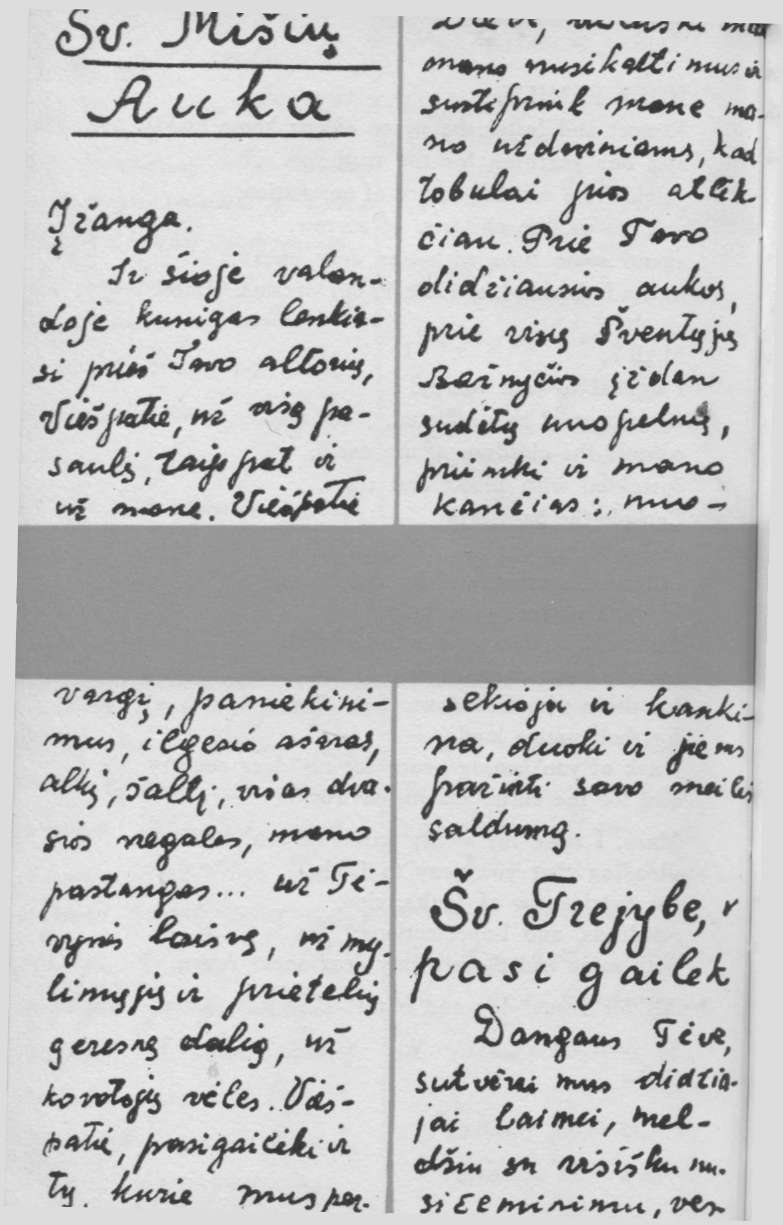 Šv. Mišių
Auka
Įžanga.
Ir šioje valan-
doje kunigas lenkia-
si prieš Tavo altorių,
Viešpatie, už visą pa-
saulį, taip pat ir
už mane. Viešpatie
Dieve,
mano nusikaltimus ir
sustiprink mane ma-
no uždaviniams, kad
tobulai juos atlik-
čiau. Prie Tavo
didžiausios aukos,
prie visų Šventųjų
Bažnyčios įždan
sudėtų nuopelnų,
priimki ir mano
kančias: nuo-
vargį, paniekini-
mus, ilgesio ašaras,
alkį, šaltį, visas dva-
sios negales, mano
pastangas... už Tė-
vynės laisvę, už my-
limųjų ir prietelių
geresnę dalią, už
kovotojų vėles. Vieš-
patie, pasigailėki ir
tų, kurie mus per-
sekioja ir kanki-
na, duoki ir jiems
pažinti savo meilės
saldumą.
Šv. Trejybe,
pasigailėk
Dangaus Tėve,
sutvėrei mus didžia-
jai laimei, mel-
džiu su visišku nu-
sižeminimu, ves-